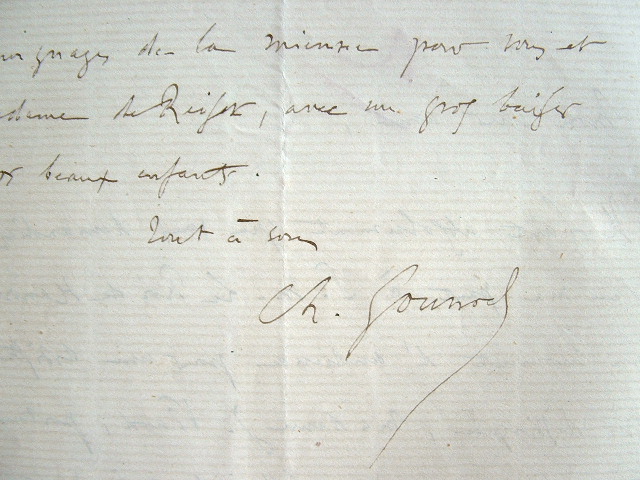 de la mienne pour vous et
de Reiset, avec un gros baiser
beaux enfants.
Tout à vous
Ch. Gounod